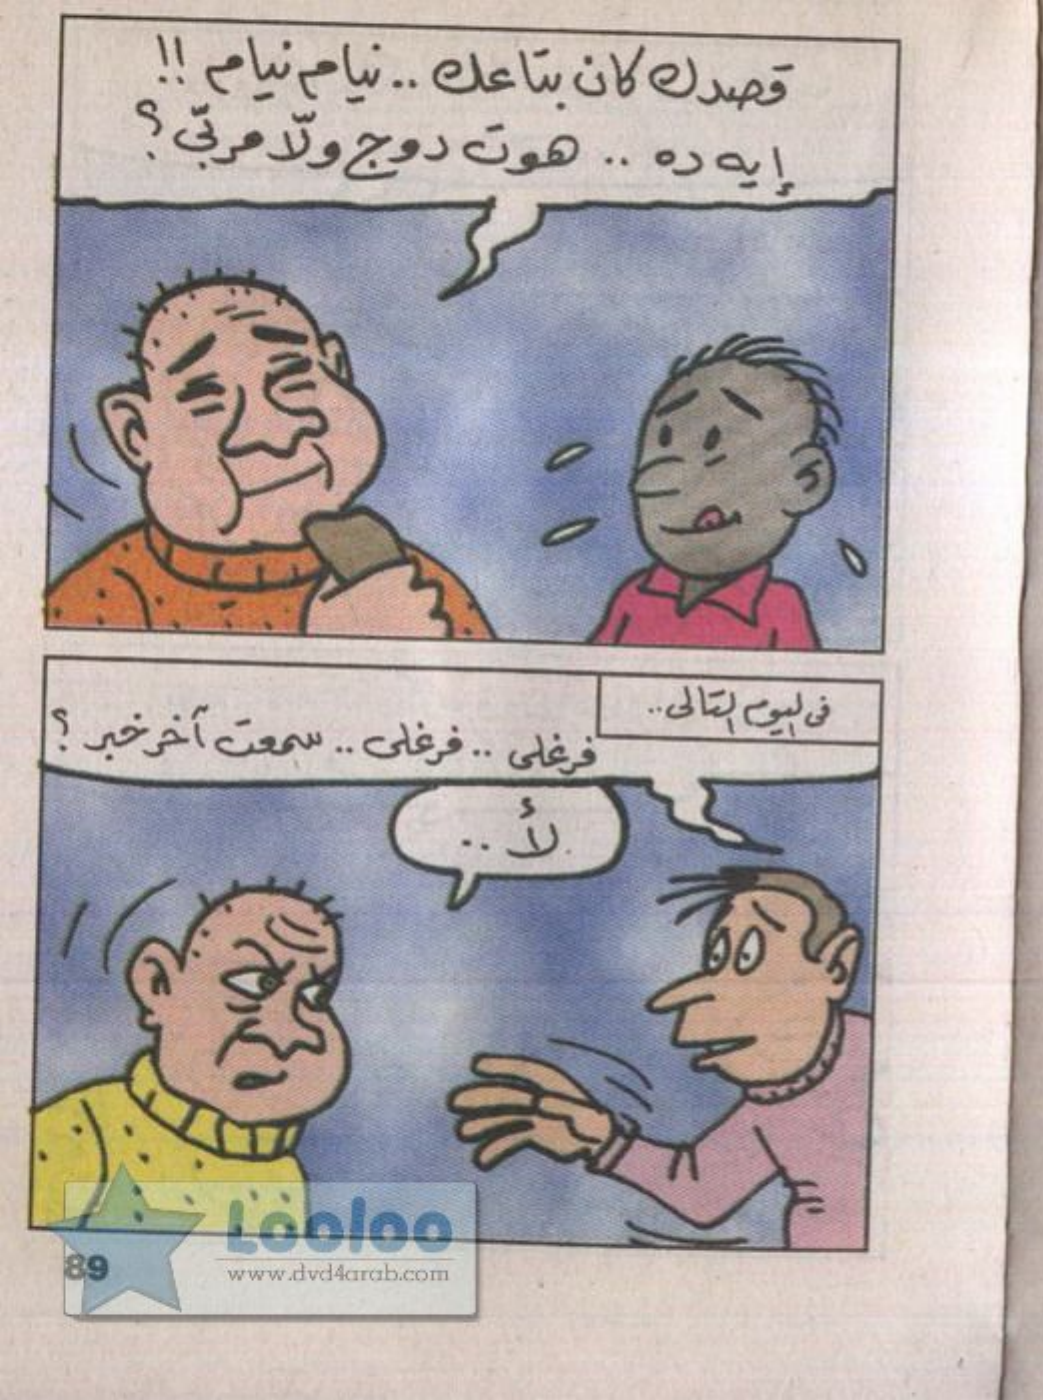 قصدك كان بتاعك .. نيام نيام !!
إيه ده .. هوت دوج ولّا مربّى ؟
فى اليوم التالى ..
فرغلى .. فرغلى .. سمعت آخر خبر ؟
لأ ..
Looloo
www.dvd4arab.com
89